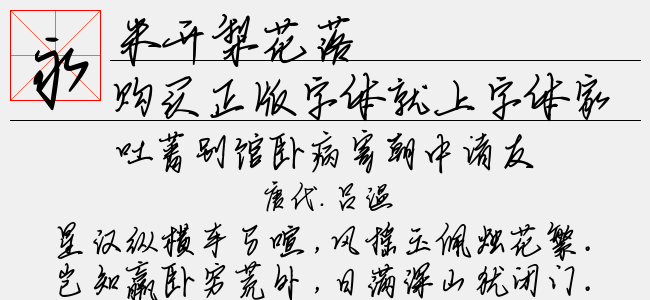 永
米开梨花落
购买正版字体就上字体家
吐蕃别馆卧病寄朝中诸友
唐代.吕温
星汉纵横车马喧,风摇玉佩烛花繁.
岂知羸卧穷荒外,日满深山犹闭门.